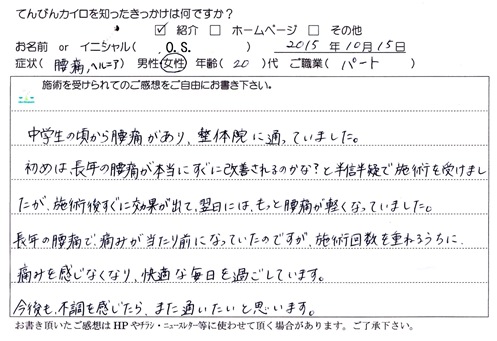 てんびんカイロを知ったきっかけは何ですか?
☑ 紹介 □ ホームページ □ その他
お名前 or イニシャル( O.S. ) 2015年10月15日
症状( 腰痛,ヘルニア ) 男性・女性 年齢( 20 )代 ご職業( パート )
施術を受けられてのご感想をご自由にお書き下さい。
中学生の頃から腰痛があり、整体院に通っていました。
初めは、長年の腰痛が本当にすぐに改善されるのかな?と半信半疑で施術を受けまし
たが、施術後すぐに効果が出て、翌日には、もっと腰痛が軽くなっていました。
長年の腰痛で、痛みが当たり前になっていたのですが、施術回数を重ねるうちに、
痛みを感じなくなり、快適な毎日を過ごしています。
今後も、不調を感じたら、また通いたいと思います。
お書き頂いたご感想はHPやチラシ・ニュースレター等に使わせて頂く場合があります。ご了承下さい。